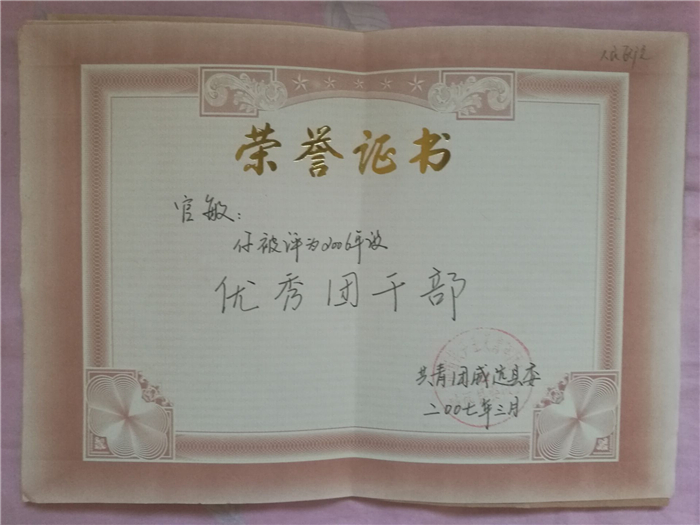 荣誉证书
官敏：
仔被评为2006年设
优秀团干部
共青团威远县委
二00七年三月